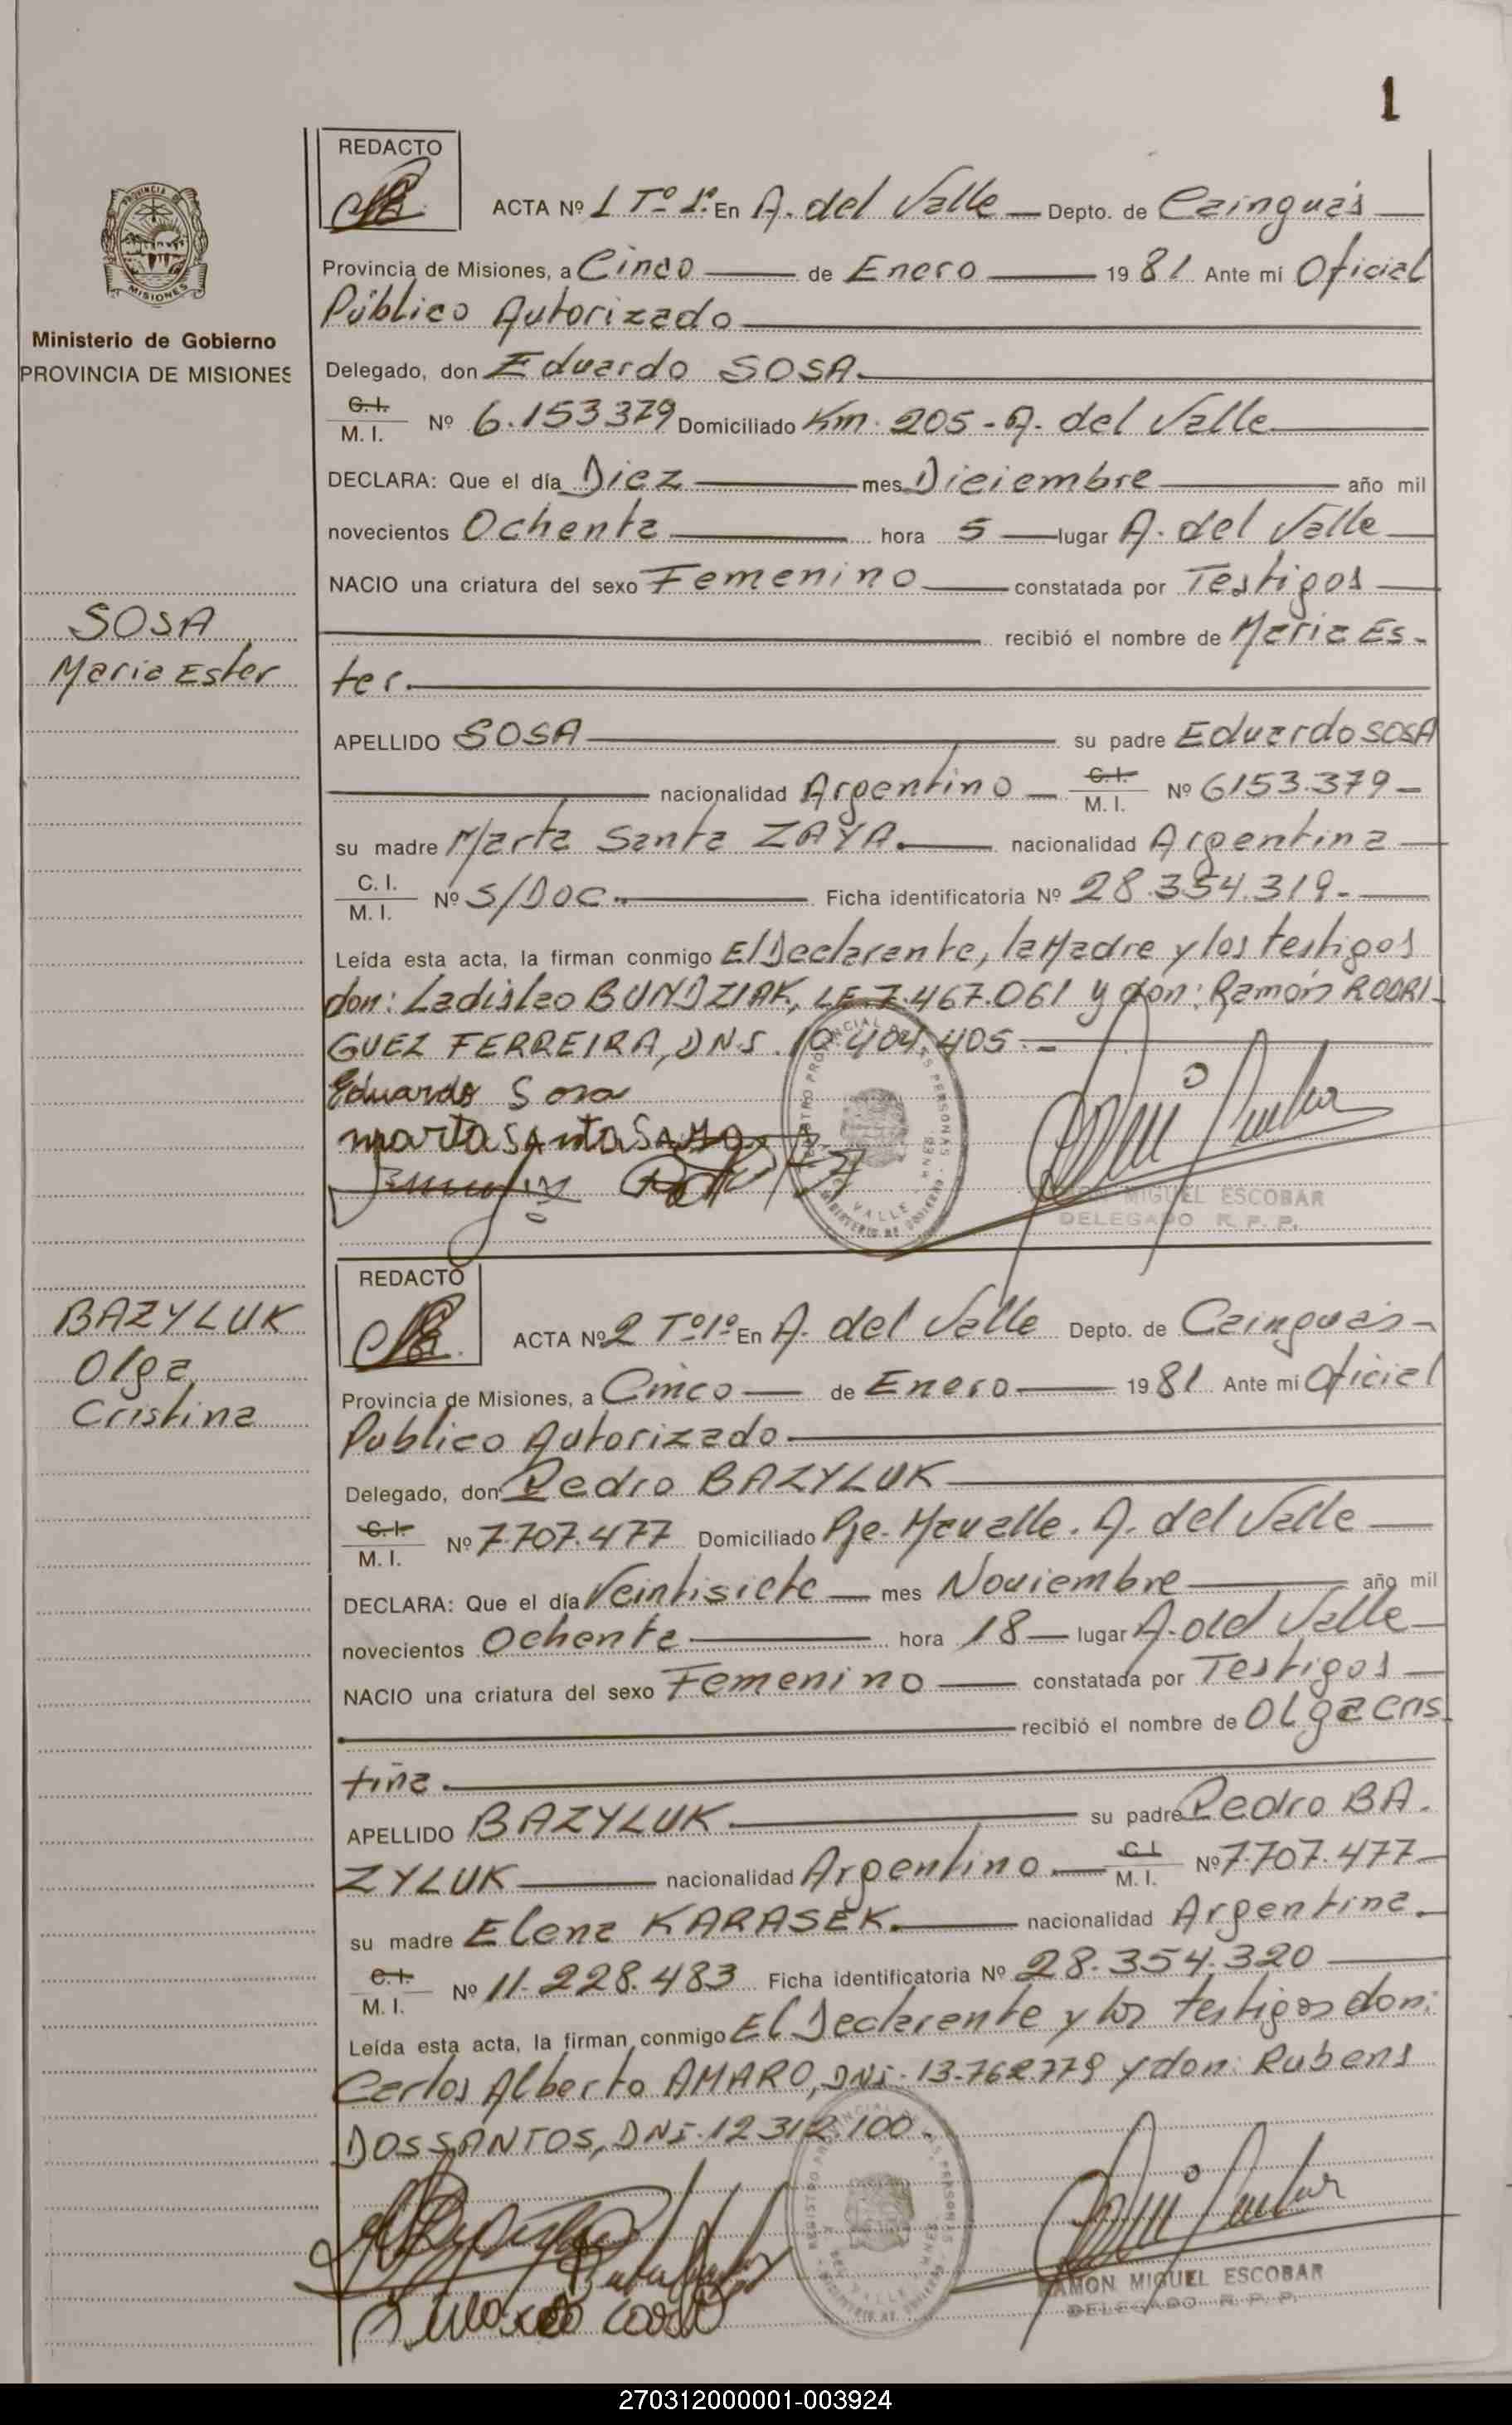 1
PROVINCIA DE
MISIONES
Ministerio de Gobierno
PROVINCIA DE MISIONES
REDACTO
ACTA Nº 1 Tº 1º En A. del Valle Depto. de Cainguás
Provincia de Misiones, a Cinco de Enero 1981 Ante mí Oficial
Público Autorizado
Delegado, don Eduardo SOSA
C. I.
M. I. Nº 6.153379 Domiciliado Km. 205 - A. del Valle
DECLARA: Que el día Diez mes Diciembre año mil
novecientos Ochenta hora 5 lugar A. del Valle
NACIO una criatura del sexo Femenino constatada por Testigos
recibió el nombre de Maria Es-
ter.
SOSA
Maria Ester
APELLIDO SOSA su padre Eduardo SOSA
nacionalidad Argentino C. I. M. I. Nº 6153.379 -
su madre Marta Santa ZAYA. nacionalidad Argentina
C. I.
M. I. Nº S/DOC. Ficha identificatoria Nº 28.354.319.-
Leída esta acta, la firman conmigo El Declarante, la Madre y los testigos
don: Ladislao BUNDZIAK, LE. 7.467.061 y don: Ramón RODRI-
GUEZ FERREIRA, DNI. 10.404.405.-
Eduardo Sosa
marta SAnta SAYA
RAMON MIGUEL ESCOBAR
DELEGADO R. P. P.
REDACTO
BAZYLUK
Olga
Cristina
ACTA Nº 2 Tº 1º En A. del Valle Depto. de Cainguás -
Provincia de Misiones, a Cinco de Enero 1981 Ante mí Oficial
Publico Autorizado.
Delegado, don Pedro BAZYLUK
C. I.
M. I. Nº 7.707.477 Domiciliado Pje. A. del Valle
DECLARA: Que el día Veintisiete mes Noviembre año mil
novecientos Ochenta hora 18 lugar A. del Valle
NACIO una criatura del sexo Femenino constatada por Testigos
recibió el nombre de Olga Cris
tina.
APELLIDO BAZYLUK su padre Pedro BA.
ZYLUK nacionalidad Argentino. C. I. M. I. Nº 7.707.477
su madre Elena KARASEK. nacionalidad Argentina.
C. I.
M. I. Nº 11.228.483 Ficha identificatoria Nº 28.354.320
Leída esta acta, la firman conmigo El Declarante y los testigos don:
Carlos Alberto AMARO, DNI. 13.762.779 y don: Rubens
DOS SANTOS, DNI. 12312.100.
RAMON MIGUEL ESCOBAR
DELEGADO R. P. P.
270312000001-003924